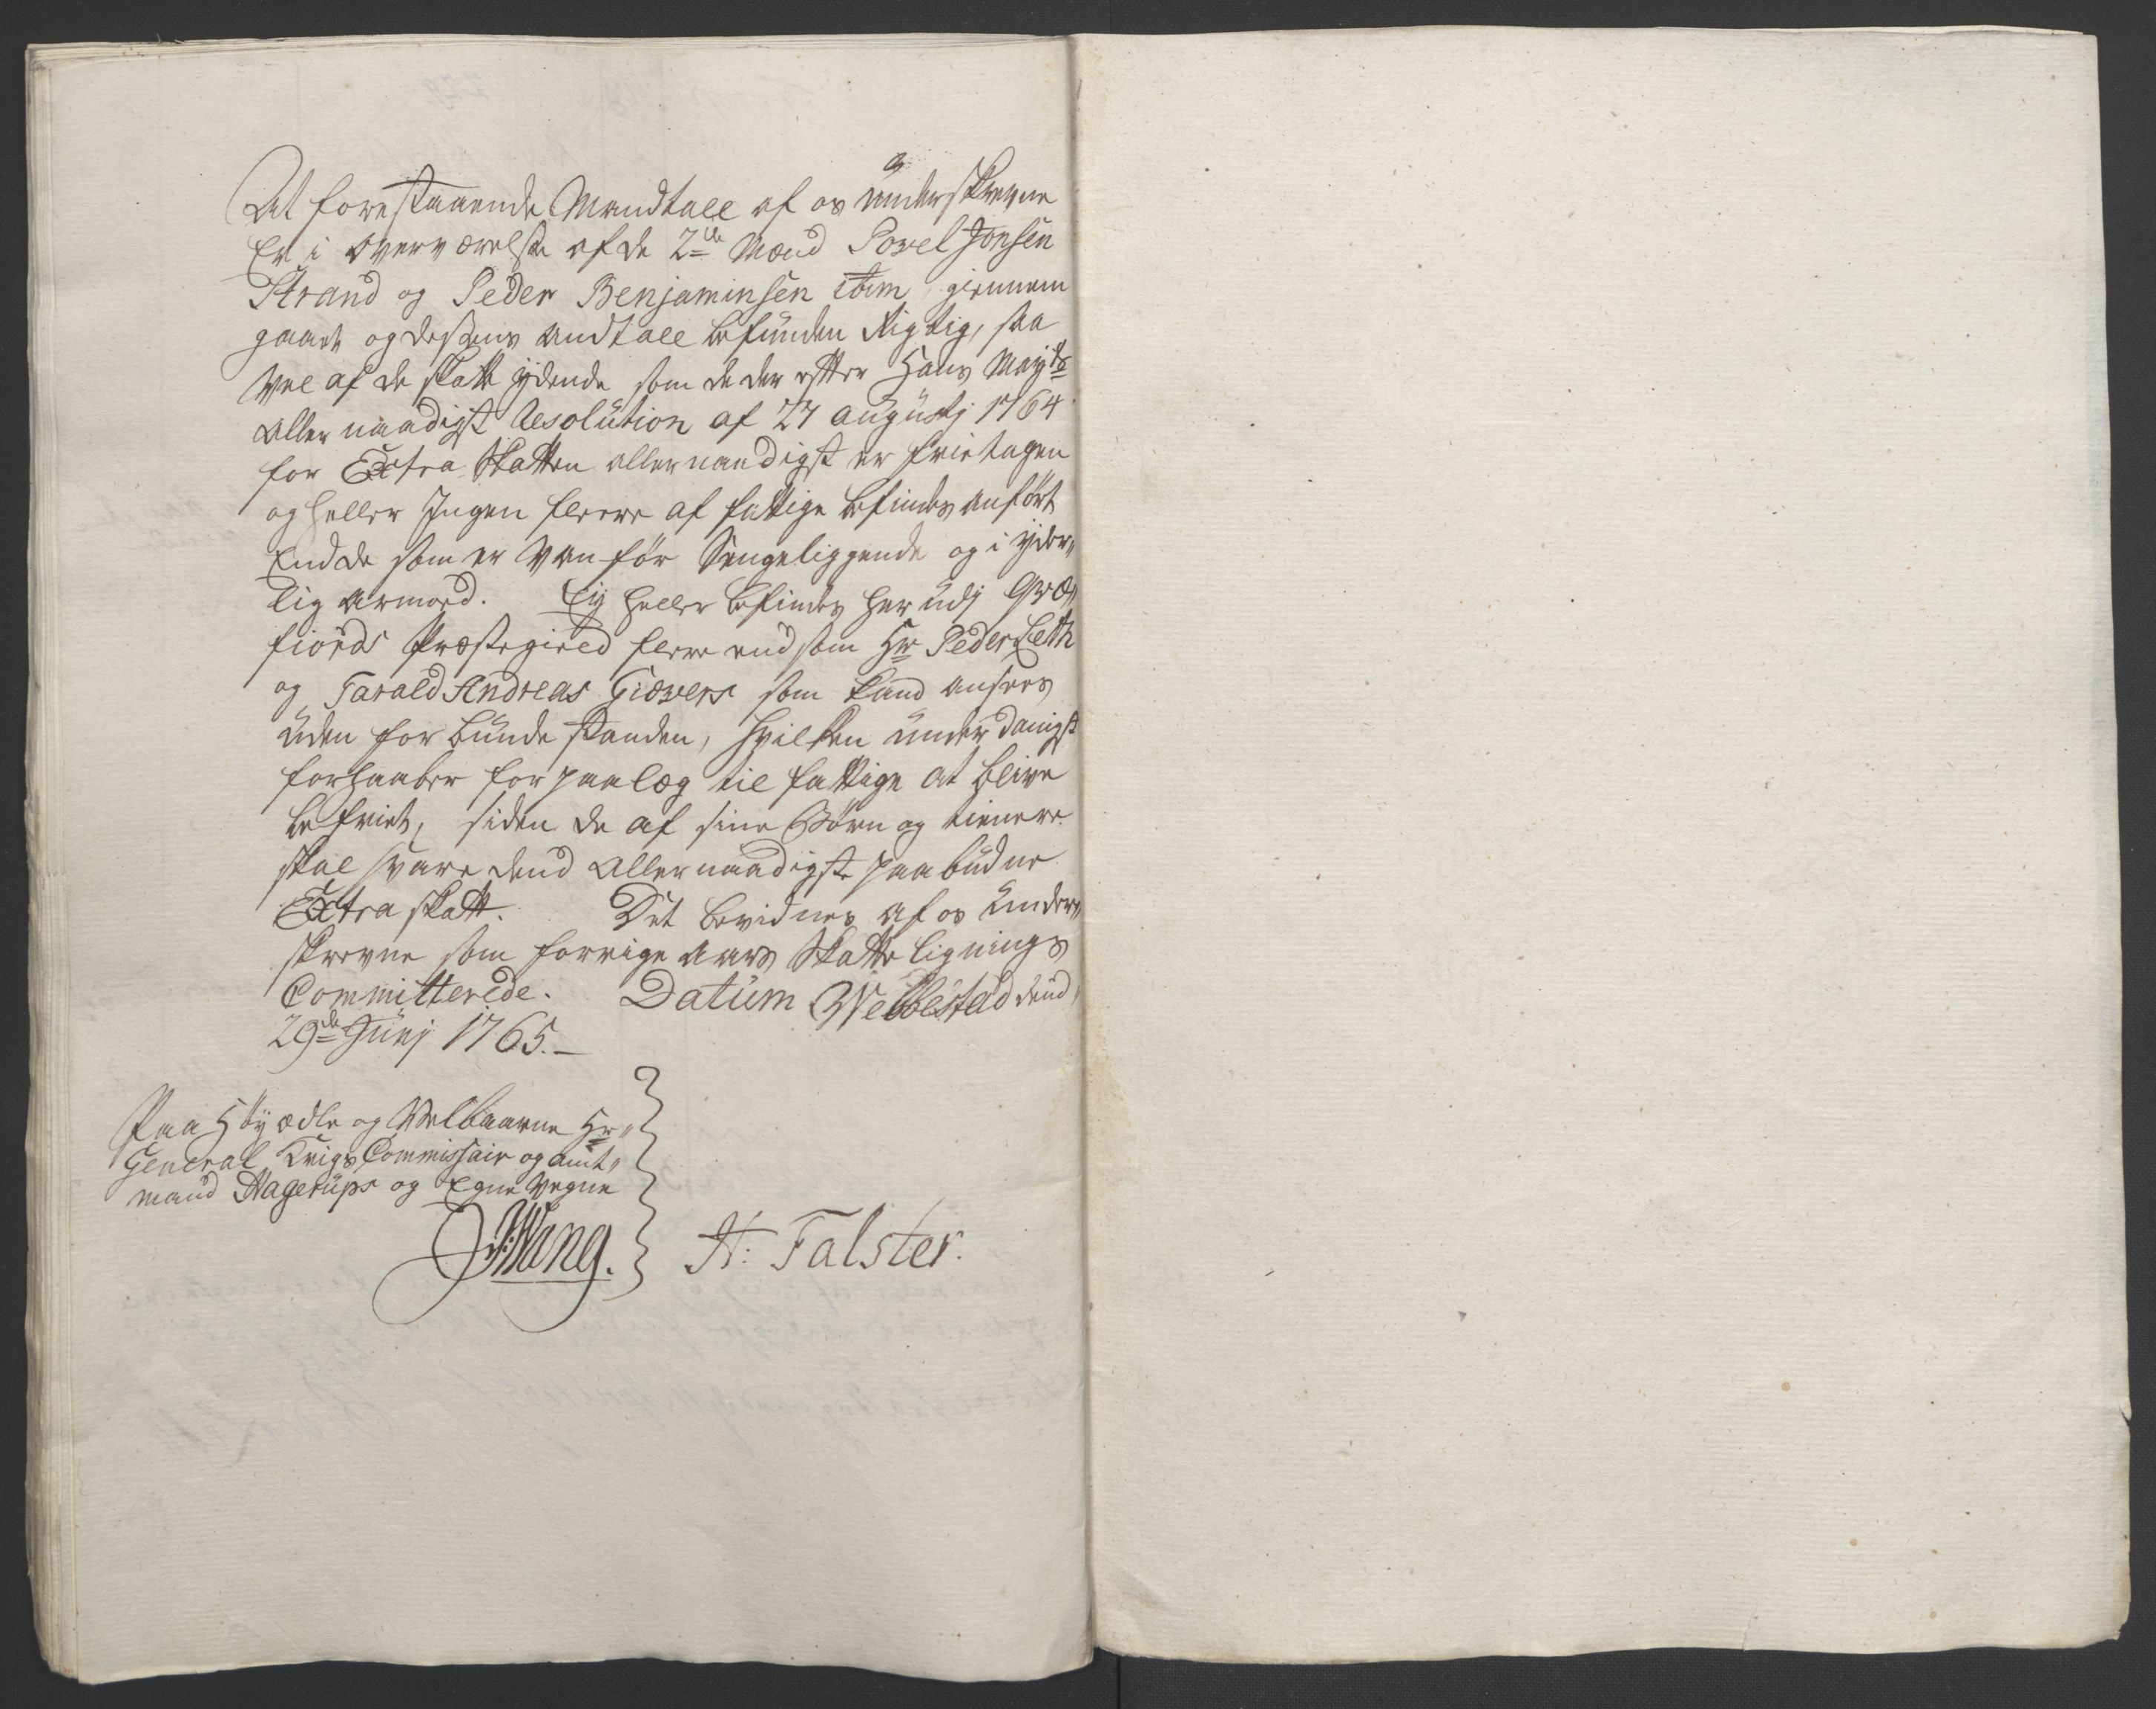 At forestaaende Mandtall af os underskrevne
Er i overværelse af de 2de Mænd Povel Jonsen
Strand og Peder Benjaminsen ibm giennem
gaaet og dessens andtall befunden Rigtig, saa
vel af de skatt ydende som de der efter Hans Mayts
aller naadigst Resolution af 27 augusti 1764
for Extra Skatten allernaadigst er frietagen
og heller Ingen fleere af fattige befindes anført
End de som er vanfør Sengeliggende og i yder„
lig armoed. Ey heller befindes her udj Qvæ„
fiords Præstegield flere end som Hr Peder Leth
og Tarald Andreas Giævers som kand ansees
uden for bunde standen, hvilken underdanigst
forhaaber for paalæg til fattige at blive
befriet, siden de af sine Børn og tienere
skal svare dend Allernaadigste paabudne
Extra skatt. Det bevidnes af os under„
skrevne som forrige aars Skatte lignings
Committerede. Datum Webbestad dend
29de Junj 1765.–
Paa Høyædle og Welbaarne Hr„
General Krigs Commissair og amt„
mand Hagerups og Egne Vegne
Wang.
H: Falster.